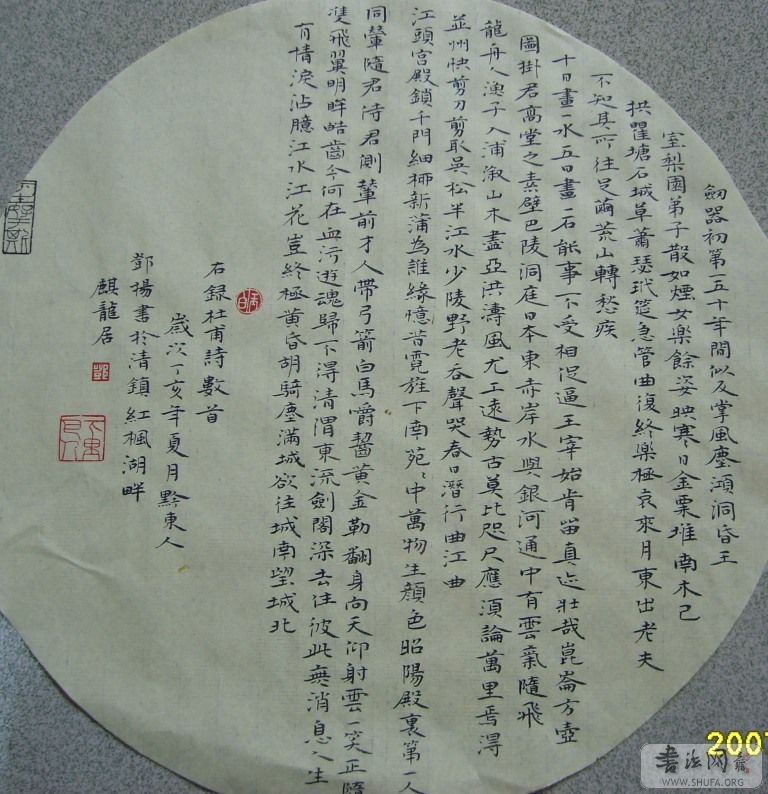 劒器初第一五十年間似反掌風塵澒洞昏王
室梨園弟子散如煙女樂餘姿映寒日金粟堆南木已
拱瞿塘石城草蕭瑟玳筵急管曲復終樂極哀來月東出老夫
不知其所往足繭荒山轉愁疾
十日畫一水五日畫一石能事不受相促逼王宰始肯留真迹壯哉崑崙方壺
圖掛君高堂之素壁巴陵洞庭日本東赤岸水與銀河通中有雲氣隨飛
龍舟人漁子入浦漵山木盡亞洪濤風尤工遠勢古莫比咫尺應須論萬里焉得
並州快剪刀剪取吳松半江水少陵野老吞聲哭春日潛行曲江曲
江頭宮殿鎖千門細柳新蒲為誰緣憶昔霓旌下南苑〻中萬物生顏色昭陽殿裏第一人
同輦隨君侍君側輦前才人帶弓箭白馬嚼齧黃金勒翻身向天仰射雲一笑正墮
雙飛翼明眸皓齒今何在血汚遊魂歸不得清渭東流劍閣深去住彼此無消息人生
有情淚沾臆江水江花豈終極黃昏胡騎塵滿城欲往城南望城北
右録杜甫詩數首
歲次丁亥年夏月黔東人
鄧揚書於清鎮紅楓湖畔
麒龍居
鄧
2007
書法网
WWW.SHUFA.ORG